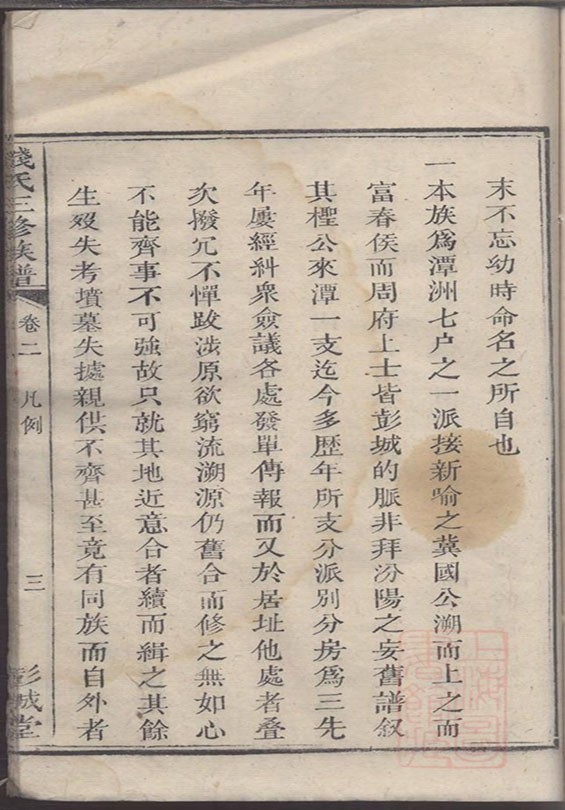 末不忘幼時命名之所自也
一本族爲潭洲七户之一派接新喻之冀國公溯而上之而
富春侯而周府上士皆彭城的脈非拜汾陽之妄舊譜叙
其檉公來潭一支迄今多歷年所支分派別分房爲三先
年屢經糾衆僉議各處發單傳報而又於居址他處者叠
次撥冗不憚跋涉原欲窮流溯源仍舊合而修之無如心
不能齊事不可強故只就其地近意合者續而緝之其餘
生殁失考墳墓失據親供不齊甚至竟有同族而自外者
錢氏三修族譜
卷二 凡例
三
彭城堂